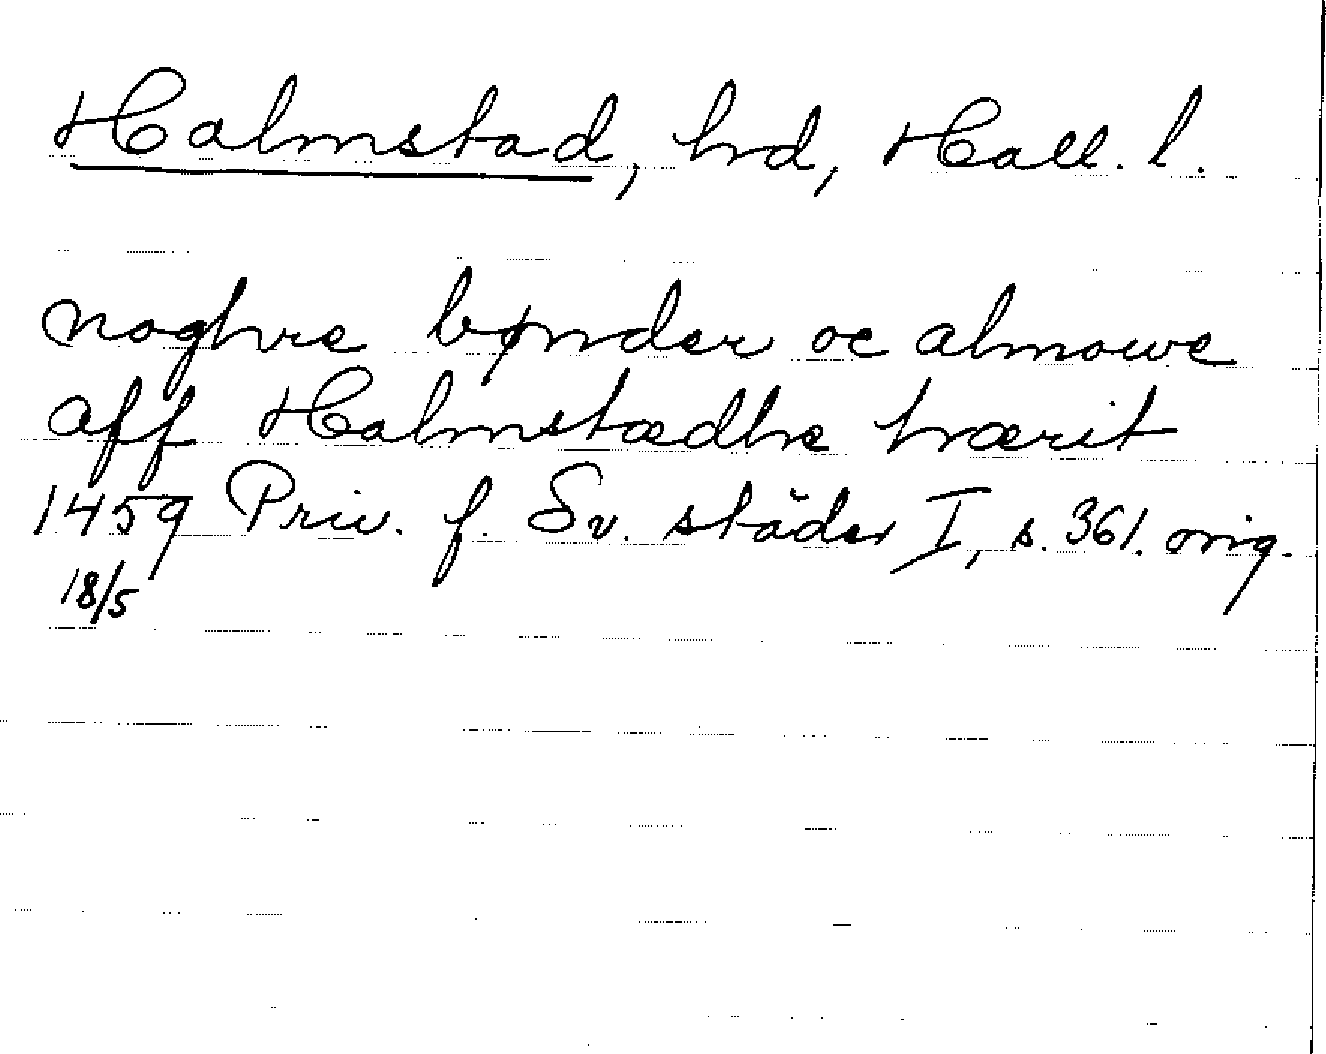 Halmstad, hrd, Hall. l.
noghre bønder oc almowe
aff Halmstædhe hrærit
1459 Priv. f. Sv. städer I, s. 361. orig.
18/5